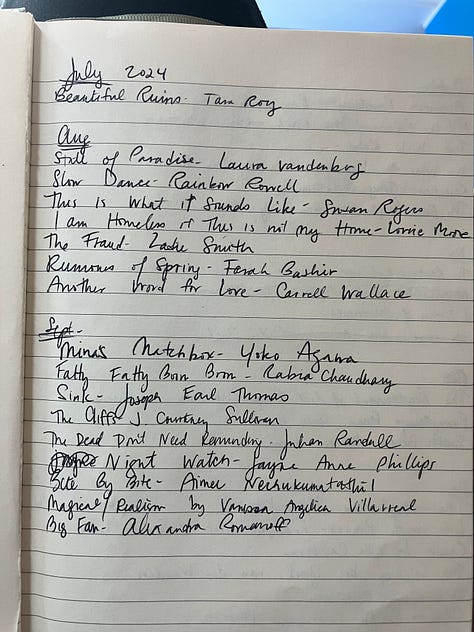 July 2024
Beautiful Ruins - Tara Roy
Aug
State of Paradise - Laura Vandenberg
Slow Dance - Rainbow Rowell
This is What it Sounds Like - Susan Rogers
I am Homeless if This is not my Home - Lorrie Moore
The Fraud - Zadie Smith
Rumours of Spring - Farah Bashir
Another Word for Love - Carvell Wallace
Sept -
Mina's Matchbox - Yoko Ogawa
Fatty Fatty Boom Boom - Rabia Chaudhary
Sink - Joseph Earl Thomas
The Cliffs J. Courtney Sullivan
The Dead Don't Need Reminding - Julian Randall
Night Watch - Jayne Anne Phillips
Bite By Bite - Aimee Nezhukumatathil
Magical/Realism by Vanessa Angelica Villarreal
Big Fan - Alexandra Romanoff